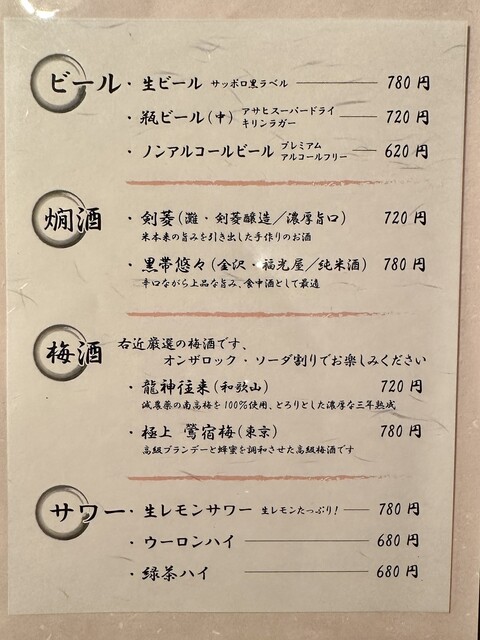 ビール・生ビール サッポロ黒ラベル 780 円
・瓶ビール(中) アサヒスーパードライ キリンラガー 720 円
・ノンアルコールビール プレミアム アルコールフリー 620 円
燗酒 ・剣菱(灘・剣菱醸造/濃厚旨口) 720 円
米本来の旨みを引き出した手作りのお酒
・黒帯悠々(金沢・福光屋/純米酒) 780 円
辛口ながら上品な旨み、食中酒として最適
梅酒 右近厳選の梅酒です、
オンザロック・ソーダ割りでお楽しみください
・龍神往来(和歌山) 720 円
減農薬の南高梅を100%使用、とろりとした濃厚な三年熟成
・極上 鶯宿梅(東京) 780 円
高級ブランデーと蜂蜜を調和させた高級梅酒です
サワー・生レモンサワー 生レモンたっぷり! 780 円
・ウーロンハイ 680 円
・緑茶ハイ 680 円